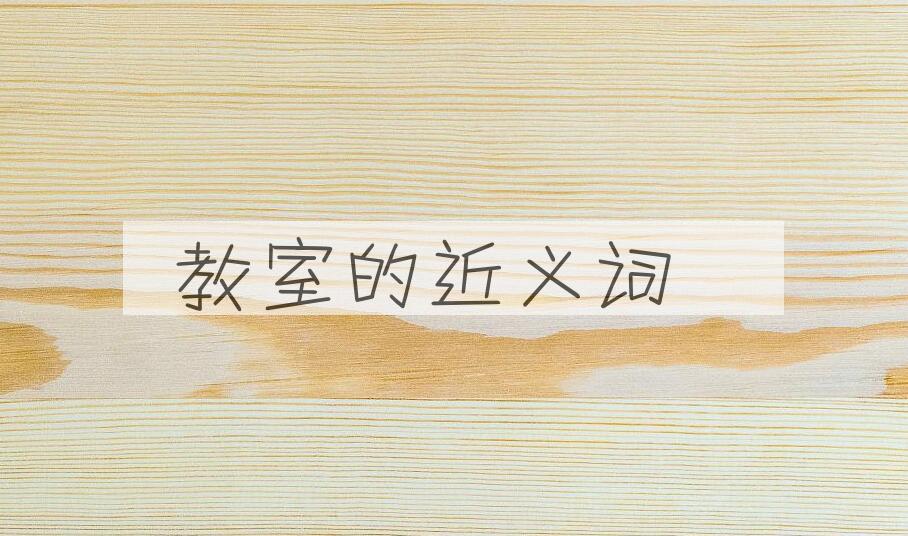 教室的近义词